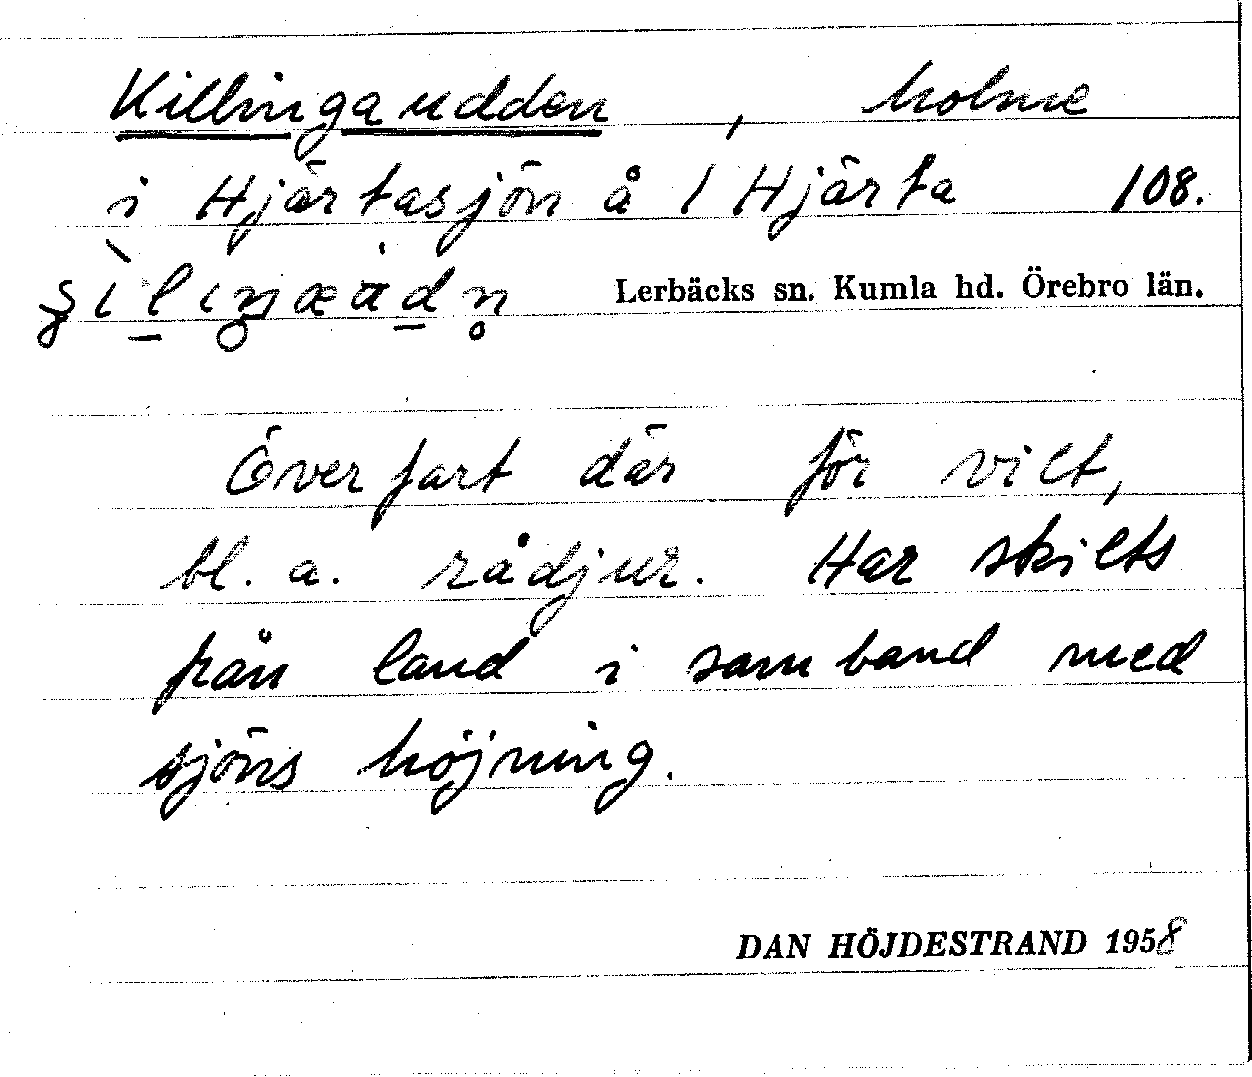 Killingaudden, holme
i Hjärtasjön å 1 Hjärta 108.
Lerbäcks sn. Kumla hd. Örebro län.
Överfart där för vilt,
bl. a. rådjur. Har skilts
från land i samband med
sjöns höjning.
DAN HÖJDESTRAND 1958